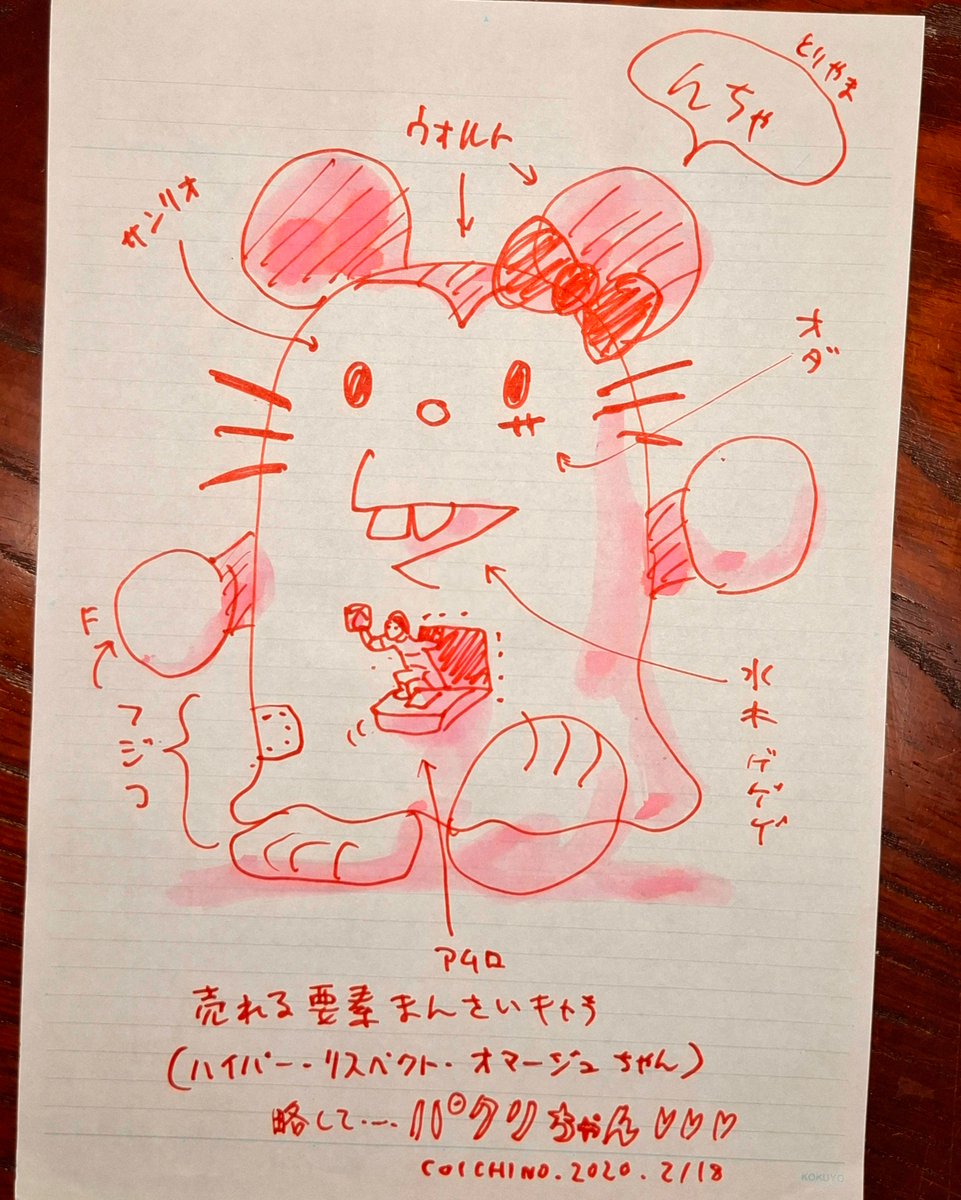 とりやま
んちゃ
ウォルト
サンリオ
オダ
F
フジコ
水木ゲゲゲ
アムロ
売れる要素まんさいキャラ
(ハイパー・リスペクト・オマージュちゃん)
略して…パクリちゃん♡♡♡
COICHINO.2020.2/18
KOKUYO